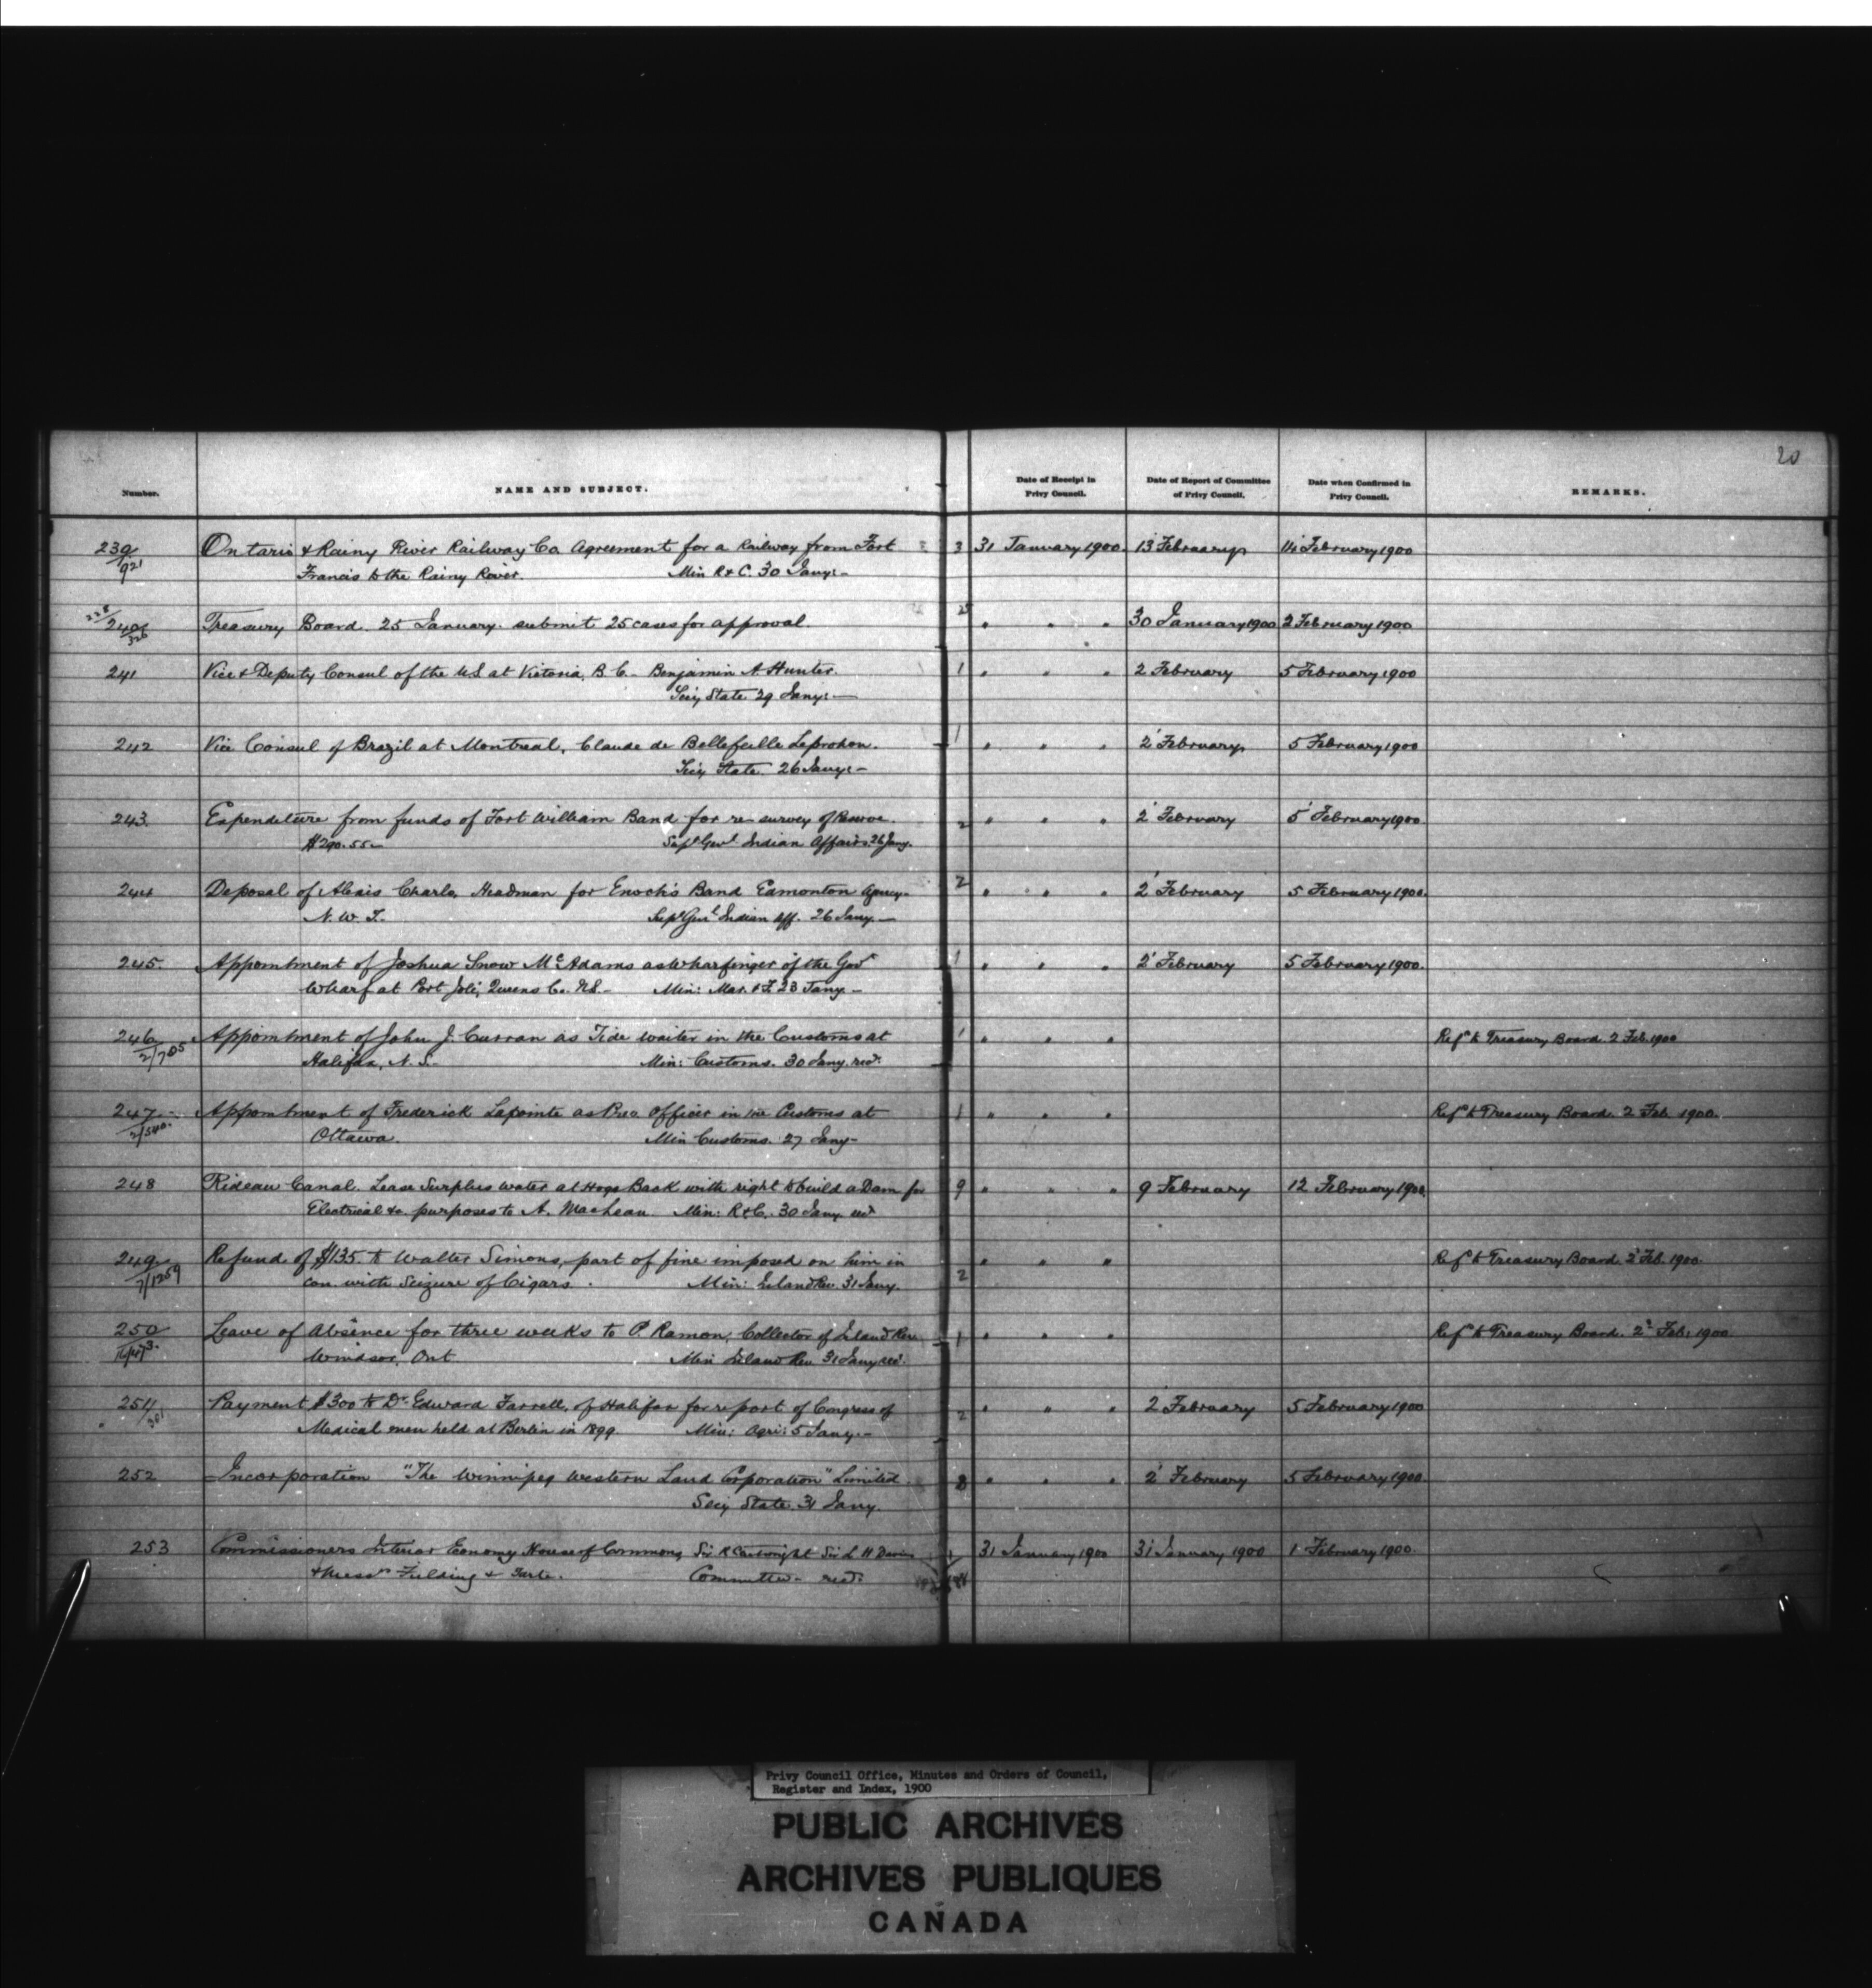 20
Number. NAME AND SUBJECT. Date of Receipt in Privy Council. Date of Report of Committee of Privy Council. Date when Confirmed in Privy Council. REMARKS.
239/921 Ontario & Rainy River Railway Co. Agreement for a Railway from Fort 3 31 January 1900. 13 February 14 February 1900
Francis to the Rainy River. Min R & C. 30 Jany:-
240 Treasury Board. 25 January. submit 25 cases for approval. " " " 30 January 1900 2 February 1900
241 Vice & Deputy Consul of the US at Victoria, B.C. Benjamin A. Hunter. 1 " " " 2 February 5 February 1900
Secy State 29 Jany:-
242 Vice Consul of Brazil at Montreal, Claude de Bellefeuille Leprohon. 1 " " " 2 February 5 February 1900
Secy State. 26 Jany:-
243. Expenditure from funds of Fort William Band for re-survey of Reserve. 2 " " " 2 February 5 February 1900
$290.55- Supt Genl Indian Affairs. 26 Jany.
244 Deposal of Alexis Charles, Headman for Enoch's Band Edmonton Agency. 2 " " " 2 February 5 February 1900.
N.W.T. Supt Genl Indian Aff. 26 Jany.-
245. Appointment of Joshua Snow McAdams as Wharfinger of the Govt 1 " " " 2 February 5 February 1900.
Wharf at Port Joli, Queens Co. N.S.- Min: Mar. & F. 23 Jany.-
246 2/705 Appointment of John J. Curran as Tide waiter in the Customs at 1 " " " Refd to Treasury Board. 2 Feb. 1900
Halifax, N.S.- Min: Customs. 30 Jany. recd.
247 2/540. Appointment of Frederick Lapointe as Prev. Officer in the Customs at 1 " " " Refd to Treasury Board. 2 Feb. 1900.
Ottawa. Min Customs. 27 Jany-
248 Rideau Canal. Lease Surplus water at Hogs Back with right to build a Dam for 9 " " " 9 February 12 February 1900.
Electrical &c. purposes to A. Maclean Min: R & C. 30 Jany. recd
249 7/1259 Refund of $135. to Walter Simons, part of fine imposed on him in 2 " " " Refd to Treasury Board. 2 Feb. 1900.
con. with Seizure of Cigars. Min: Inland Rev. 31 Jany.
250 Leave of Absence for three weeks to P. Ramon, Collector of Inland Rev 1 " " " Refd to Treasury Board. 2 Feb: 1900
Windsor, Ont Min Inland Rev. 31 Jany recd.
251/301 Payment $300 to Dr. Edward Farrell, of Halifax for report of Congress of 2 " " " 2 February 5 February 1900
Medical men held at Berlin in 1899. Min: Agri: 5 Jany.-
252 Incorporation "The Winnipeg Western Land Corporation" Limited. 8 " " " 2 February 5 February 1900.
Secy State. 31 Jany.
253 Commissioners Interior Economy House of Commons, Sir R Cartwright Sir L H Davies 1 31 January 1900 31 January 1900 1 February 1900.
& Messrs Fielding & Tarte. Committee- recd:
Privy Council Office, Minutes and Orders of Council,
Register and Index, 1900
PUBLIC ARCHIVES
ARCHIVES PUBLIQUES
CANADA